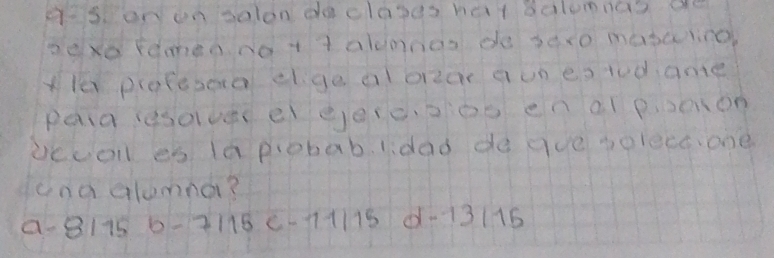 9-Si en un salon de clases hay 8 alumnas de
sexo femenino y 7 alumnos de sexo masculino,
y la profesora elige al azar a un estudiante
para resolver el ejercicios en al pisarron
¿cual es la probabilidad de que seleccione
una alumna?
a-8/15 b-7/15 c-11/15 d-13/15